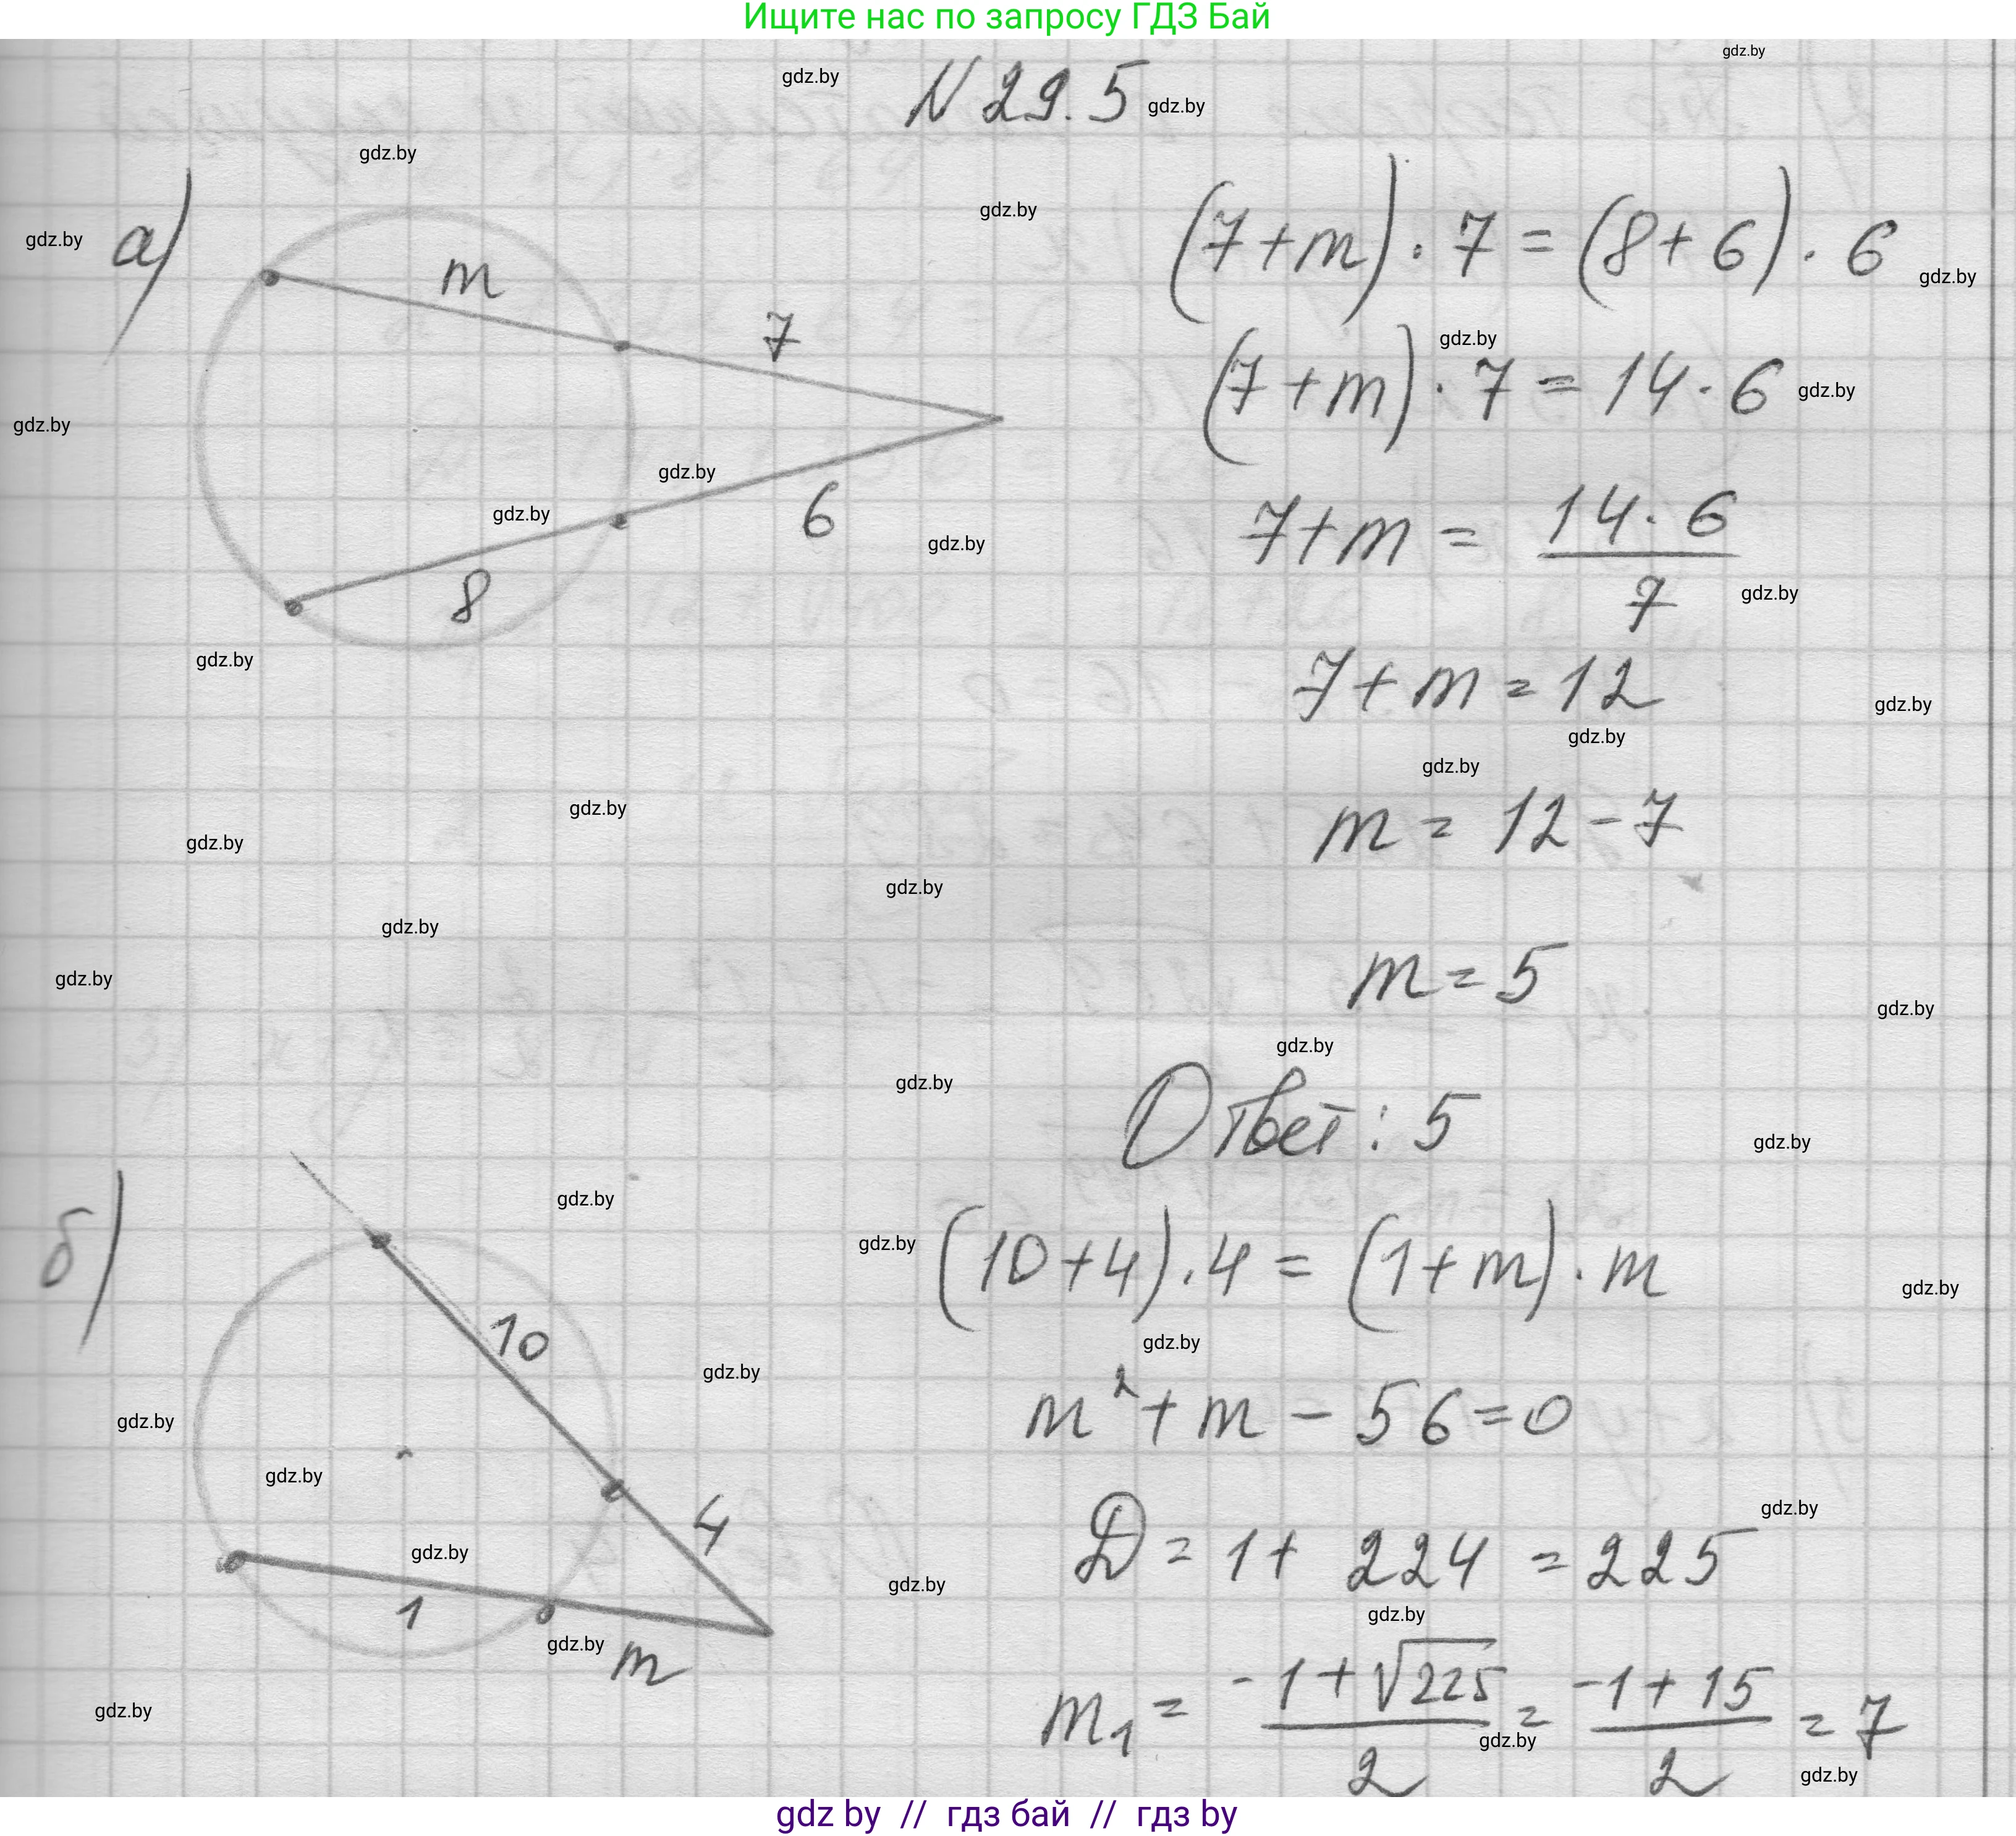 Ищите нас по запросу ГДЗ Бай
gdz.by
gdz.by
N 29.5
gdz.by
gdz.by
gdz.by
gdz.by
а)
m
7
6
8
(7+m) · 7 = (8+6) · 6
gdz.by
gdz.by
(7+m) · 7 = 14 · 6
gdz.by
gdz.by
gdz.by
gdz.by
gdz.by
7+m = 14 · 6 / 7
gdz.by
gdz.by
7+m = 12
gdz.by
gdz.by
gdz.by
gdz.by
gdz.by
m = 12 - 7
gdz.by
gdz.by
gdz.by
m = 5
gdz.by
gdz.by
gdz.by
Ответ: 5
gdz.by
б)
10
4
1
m
gdz.by
gdz.by
(10+4) · 4 = (1+m) · m
gdz.by
gdz.by
gdz.by
m² + m - 56 = 0
gdz.by
gdz.by
gdz.by
D = 1 + 224 = 225
gdz.by
gdz.by
gdz.by
gdz.by
m₁ = -1 + √225 / 2 = -1 + 15 / 2 = 7
gdz.by
gdz.by
gdz.by
gdz by // гдз бай // гдз by